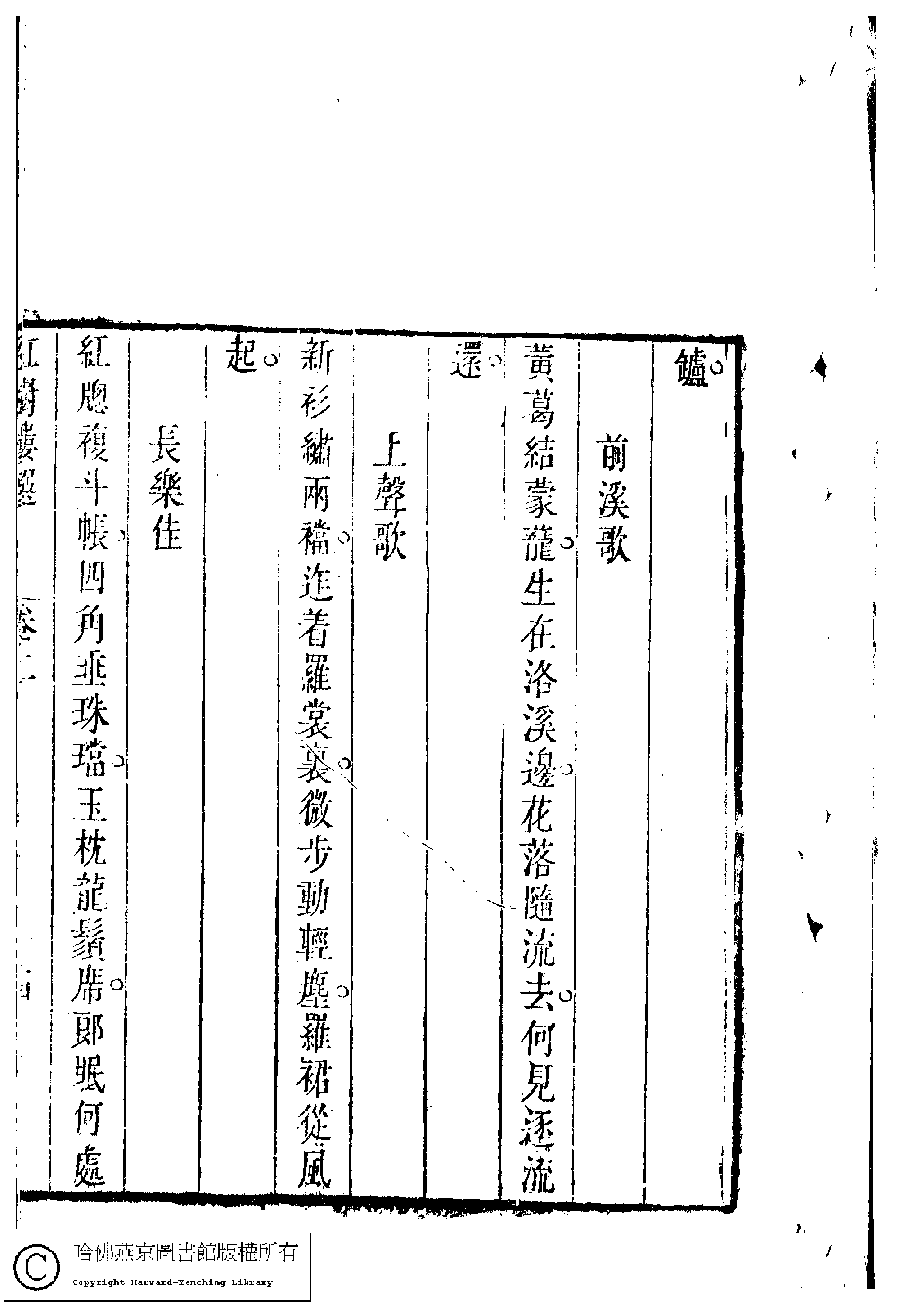 鑪
前溪歌
黃葛結蒙蘢生在洛溪邊花落隨流去何見逐流
還
上聲歌
新衫繡兩襠迮着羅裳裏微步動輕塵羅裙從風
起
長樂佳
紅牎複斗帳四角垂珠璫玉枕龍鬚席郎眠何處
紅樹樓選
卷二
哈佛燕京圖書館版權所有
Copyright Harvard-Yenching Library